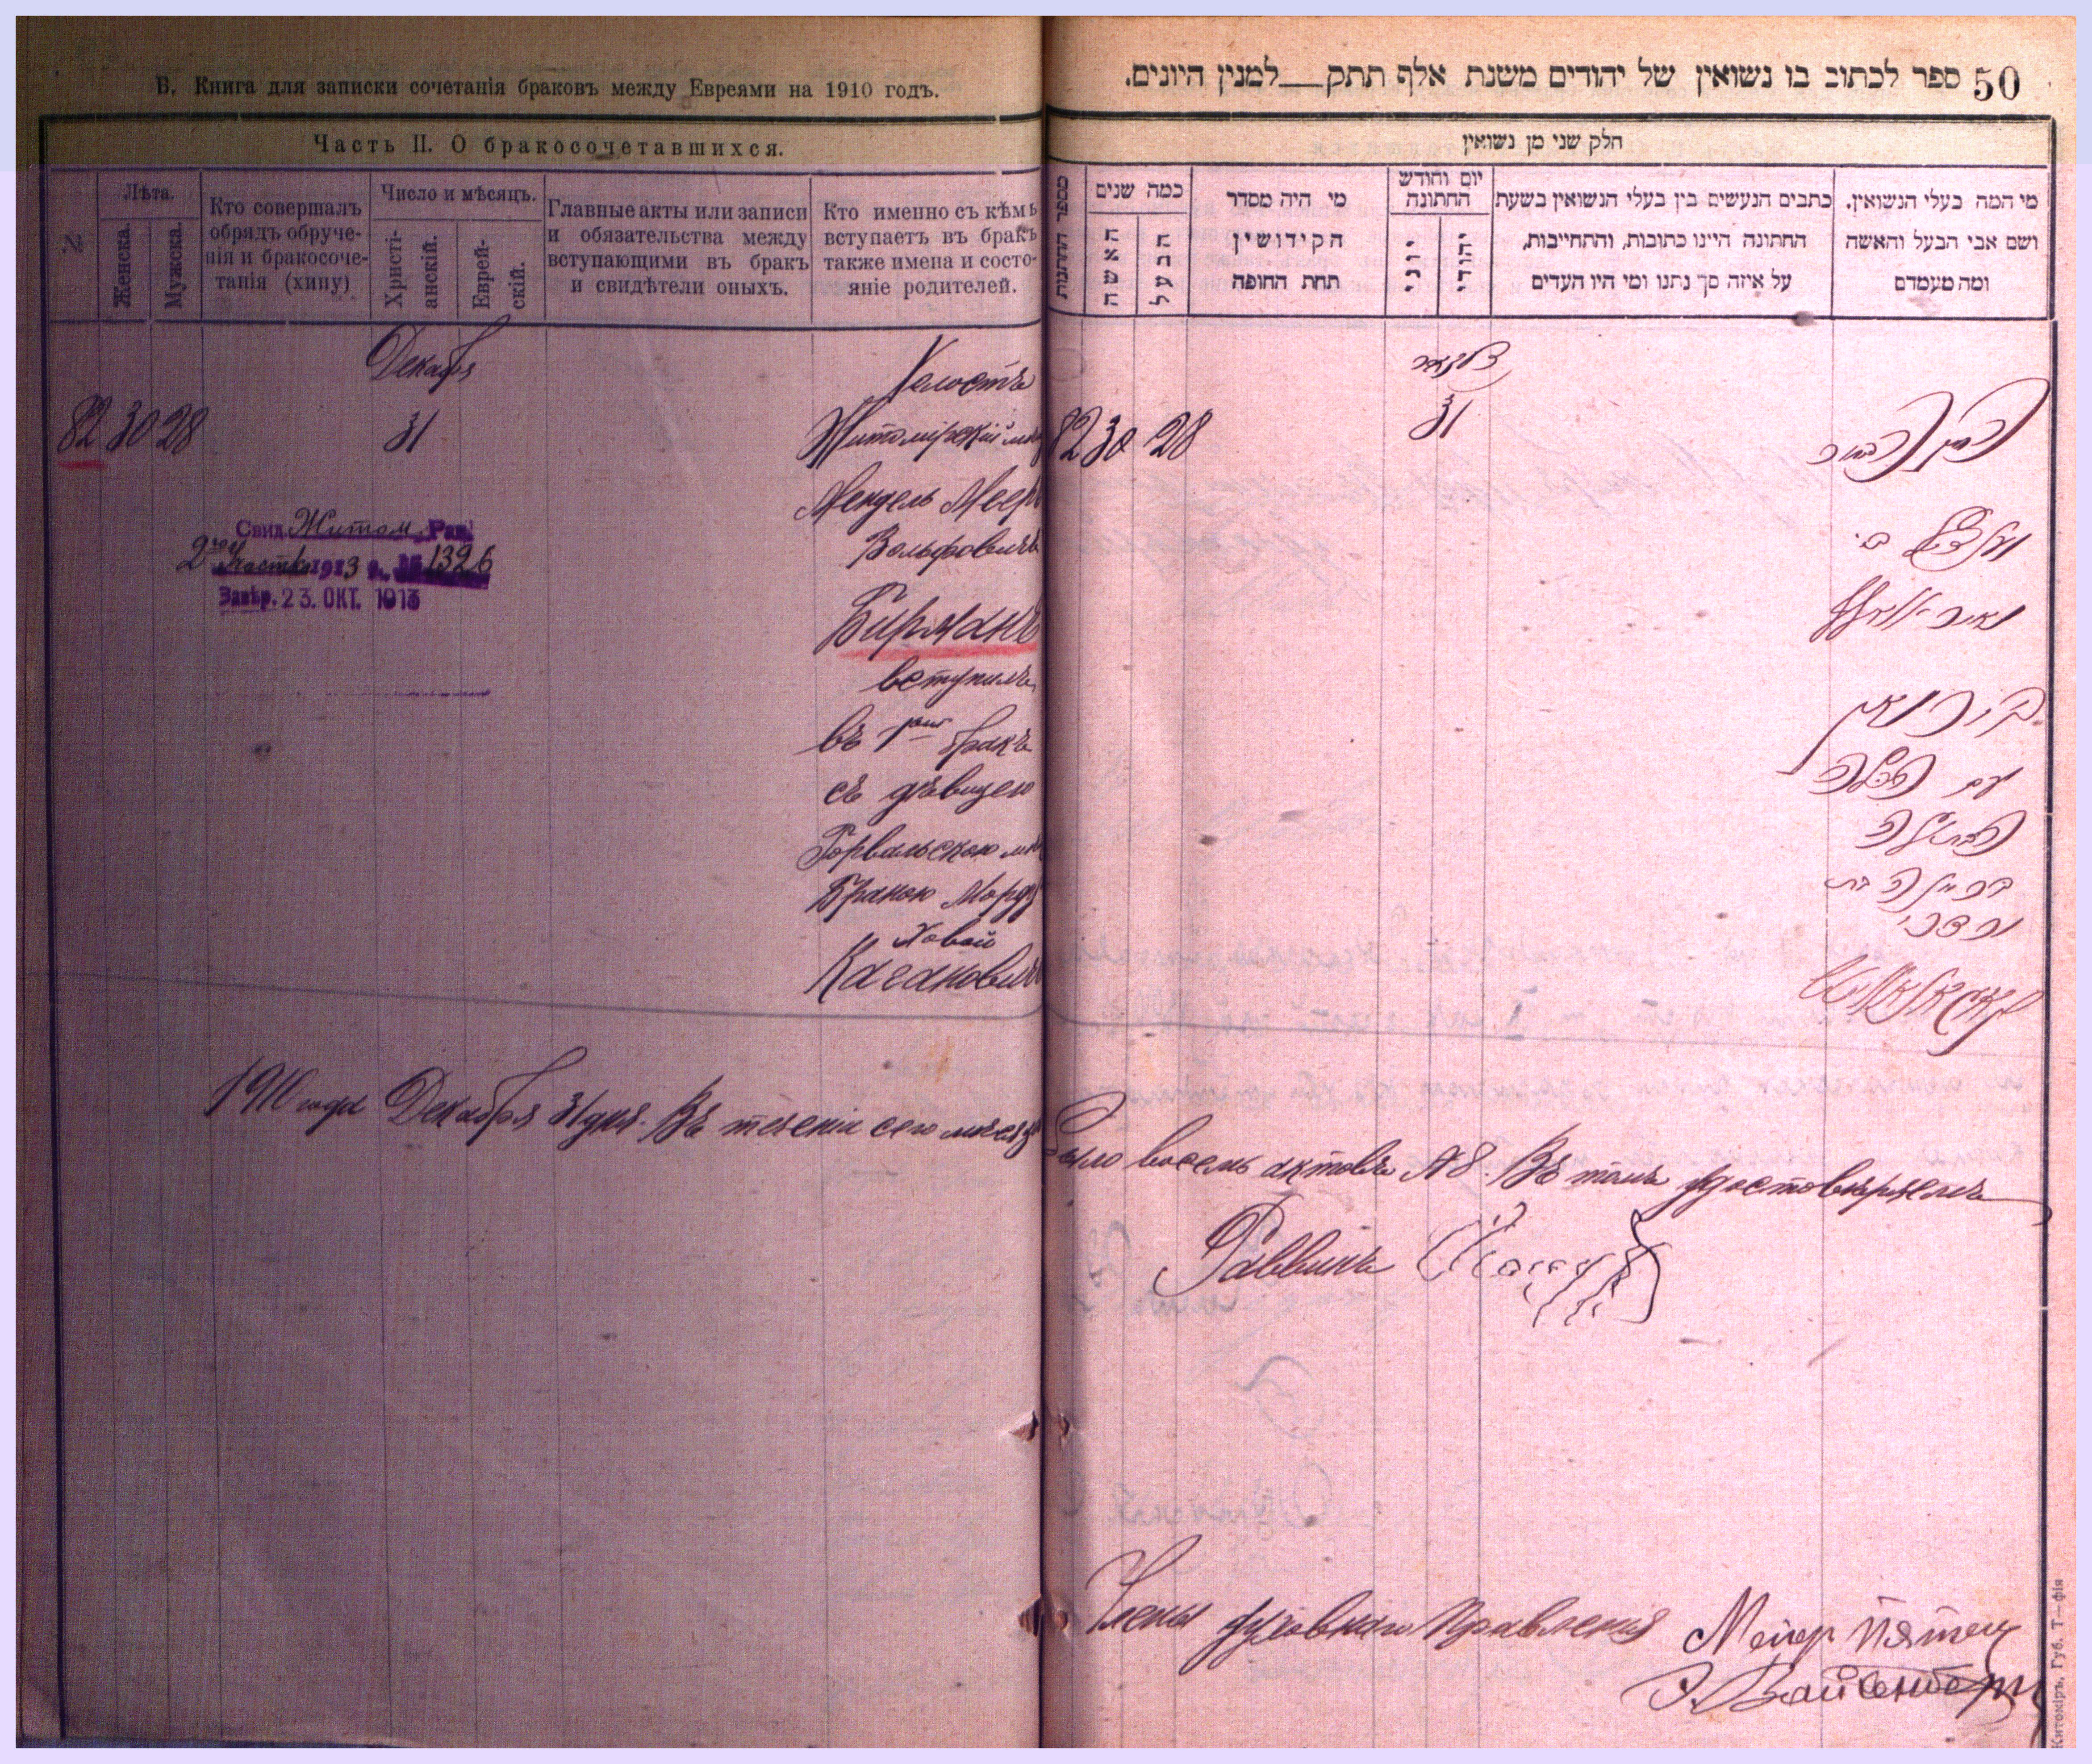 Б. Книга для записки сочетанія браковъ между Евреями на 1910 годъ.
Часть II. О бракосочетавшихся.
№
Лѣта.
Женска.
Мужска.
Кто совершалъ
обрядъ обруче-
нія и бракосоче-
танія (хипу)
Число и мѣсяцъ.
Христі-
анскій.
Еврей-
скій.
Главные акты или записи
и обязательства между
вступающими въ бракъ
и свидѣтели оныхъ.
Кто именно съ кѣмъ
вступаетъ въ бракъ
также имена и состо-
яніе родителей.
Декабря
82 30 28
31
Холостъ
Житомірскій мѣщ
Мендель Меер
Вольфовичъ
Бирманъ
вступилъ
въ 1й бракъ
съ дѣвицею
Горвальскою мѣщ
Браною Морд
ховой
Кагановичъ
Свид Житом. Рав.
2го участка 1913 г. № 1326
Завѣр. 23. ОКТ. 1913
1910 года Декабря 31 дня. Въ теченіи сего мѣсяца
50 ספר לכתוב בו נשואין של יהודים משנת אלף תתק—למנין היונים.
חלק שני מן נשואין
מספר החתונות
כמה שנים
האשה
הבעל
מי היה מסדר
הקידושין
תחת החופה
יום וחודש
החתונה
יוני
יהודי
כתבים הנעשים בין בעלי הנשואין בשעת
החתונה היינו כתובות, והתחייבות,
על איזה סך נתנו ומי היו העדים
מי המה בעלי הנשואין.
ושם אבי הבעל והאשה
ומה מעמדם
דעצאבר
82 30 28
31
הבחור
מענדל ב׳
מאיר וואלף
בירמאן
עם
הבתולה
בריינה בת
מרדכי
קאגאנאוויטש
было восемь актовъ №8. Въ томъ удостовѣряемъ
Раввинъ
Члены духовнаго Правленія Мейер Пятец
Э. Вайсенберг
Житоміръ, Губ. Т—фія